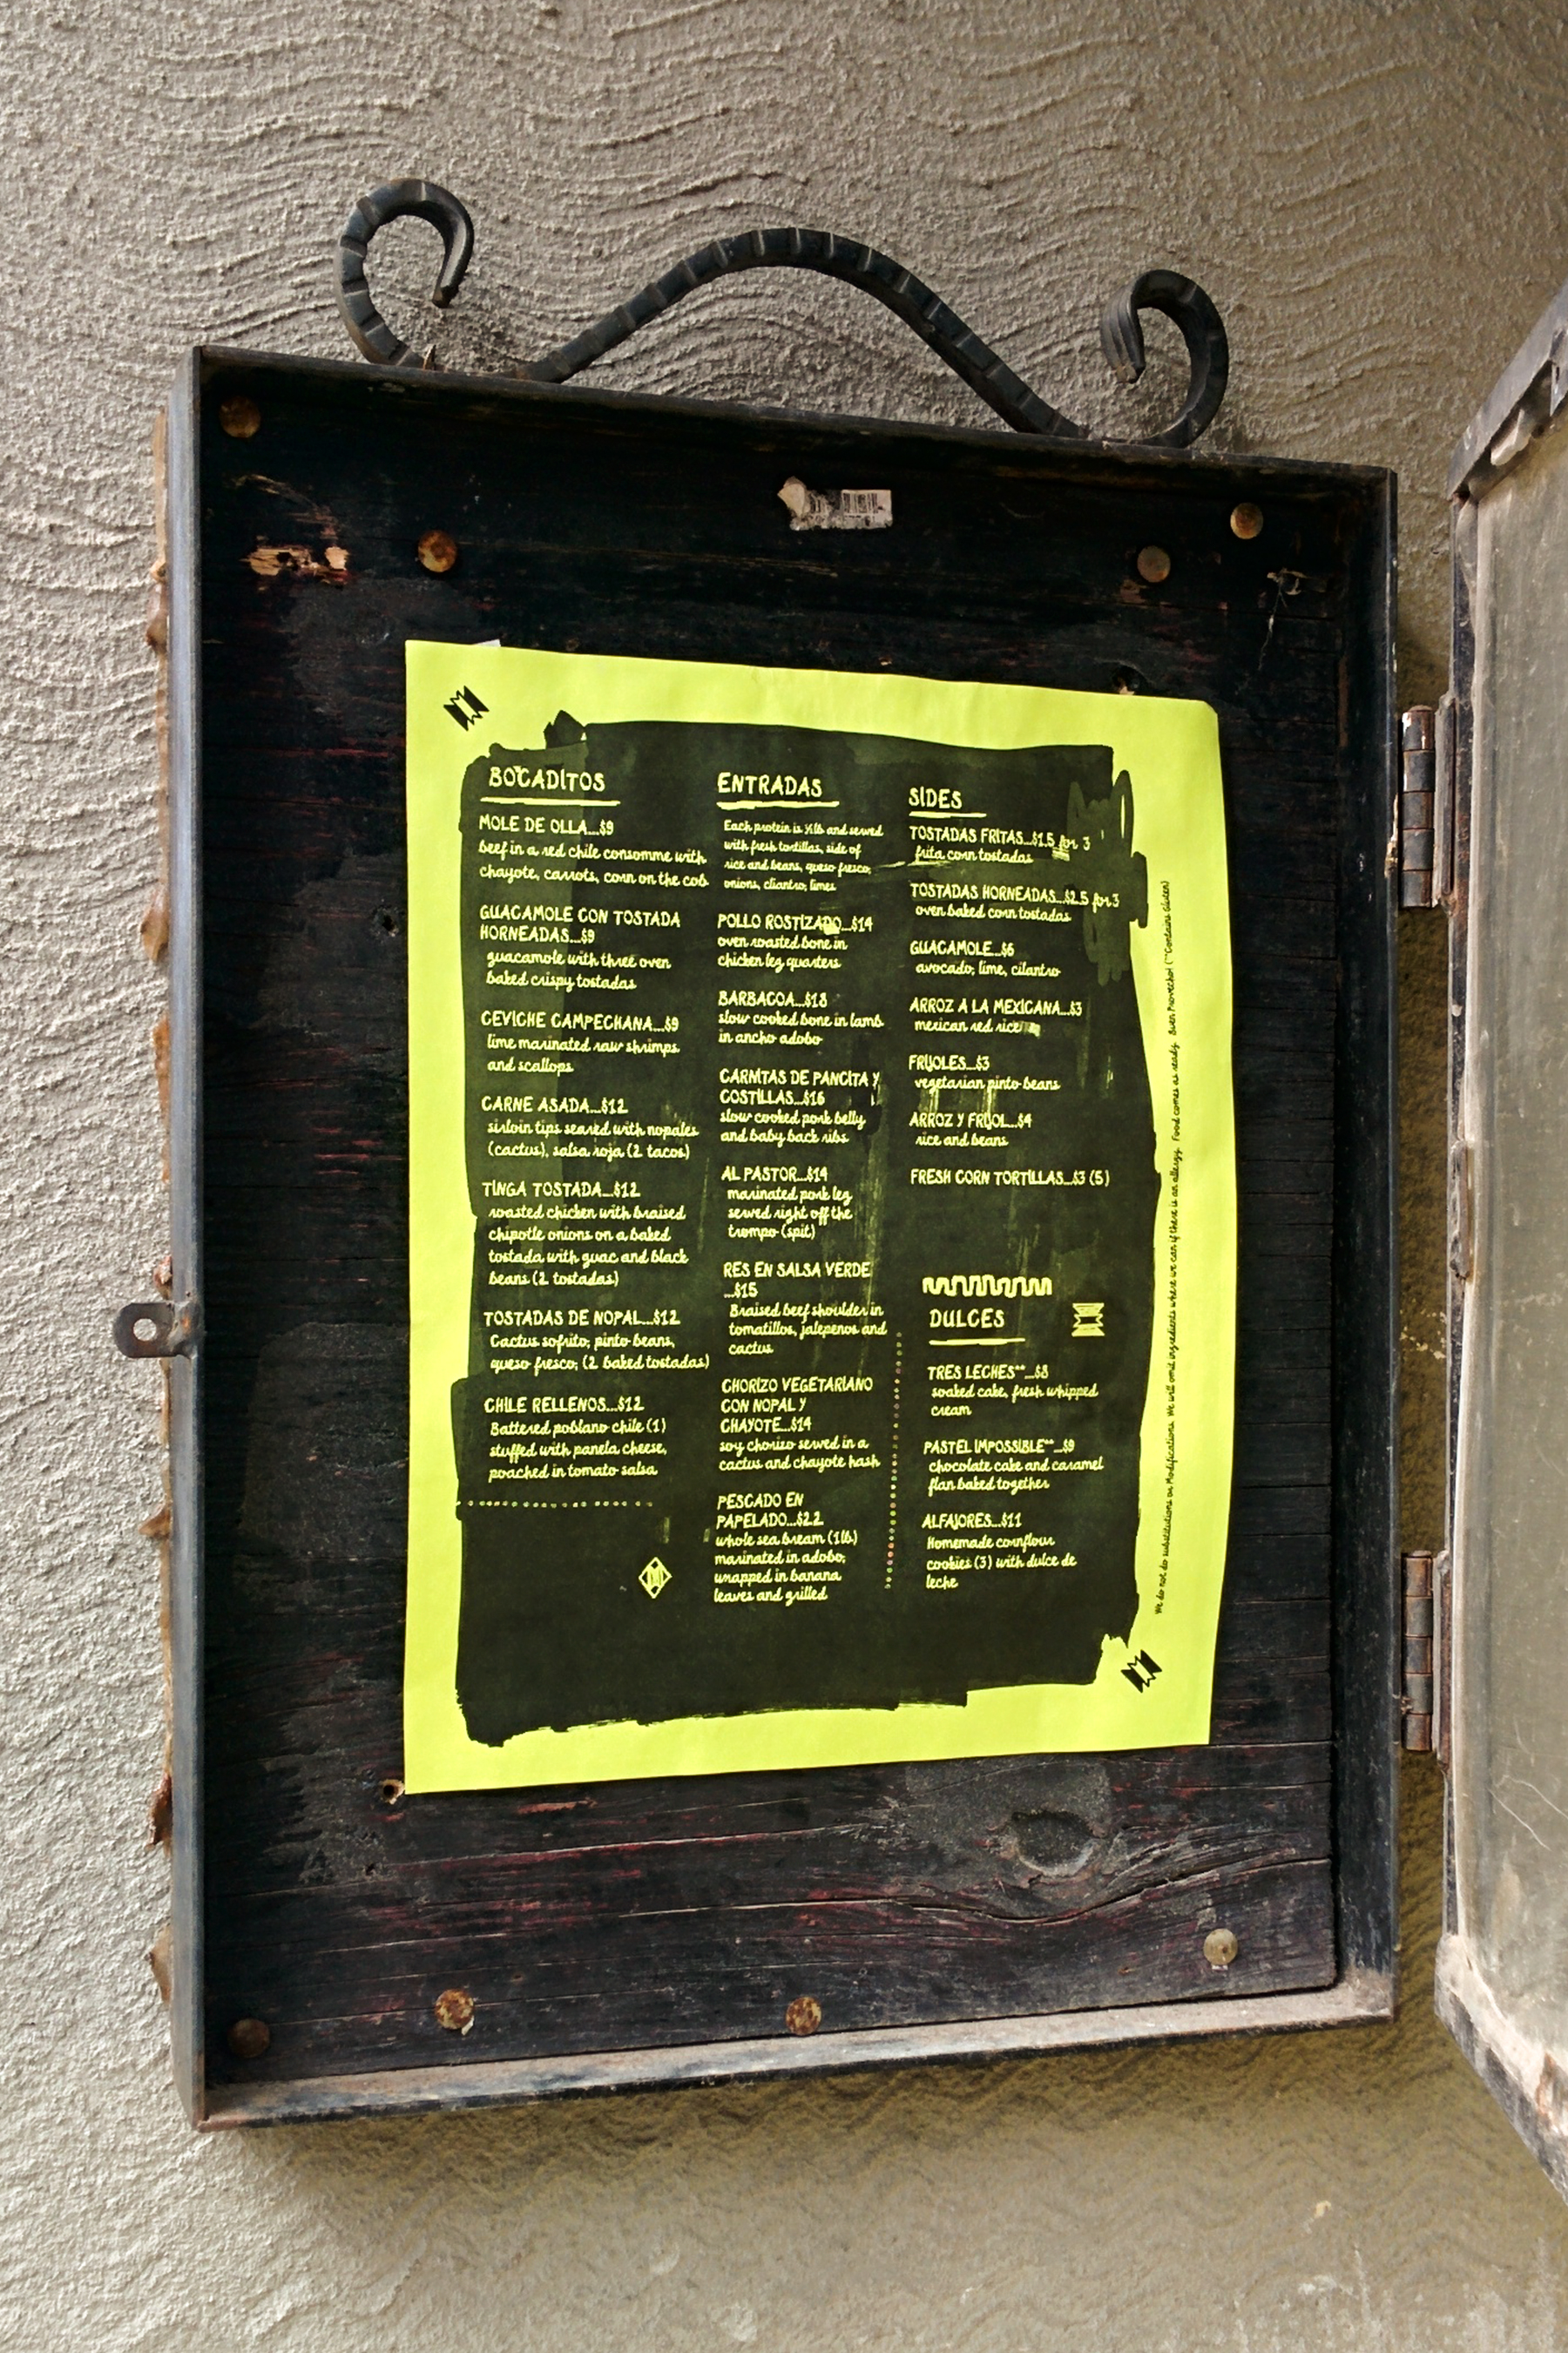 BOCADITOS
MOLE DE OLLA...$9
beef in a red chile consomme with
chayote, carrots, corn on the cob
GUACAMOLE CON TOSTADA
HORNEADAS...$9
guacamole with three oven
baked crispy tostadas
CEVICHE CAMPECHANA...$9
lime marinated raw shrimps
and scallops
CARNE ASADA...$12
sirloin tips seared with nopales
(cactus), salsa roja (2 tacos)
TINGA TOSTADA...$12
roasted chicken with braised
chipotle onions on a baked
tostada with guac and black
beans (2 tostadas)
TOSTADAS DE NOPAL...$12
Cactus sofrito, pinto beans,
queso fresco, (2 baked tostadas)
CHILE RELLENOS...$12
Battered poblano chile (1)
stuffed with panela cheese,
poached in tomato salsa
ENTRADAS
Each protein is ½lb and served
with fresh tortillas, side of
rice and beans, queso fresco,
onions, cilantro, limes
POLLO ROSTIZADO...$14
oven roasted bone in
chicken leg quarters
BARBACOA...$18
slow cooked bone in lamb
in ancho adobo
CARNITAS DE PANCITA Y
COSTILLAS...$16
slow cooked pork belly
and baby back ribs
AL PASTOR...$14
marinated pork leg
served right off the
trompo (spit)
RES EN SALSA VERDE
...$15
Braised beef shoulder in
tomatillos, jalepenos and
cactus
CHORIZO VEGETARIANO
CON NOPAL Y
CHAYOTE...$14
soy chorizo served in a
cactus and chayote hash
PESCADO EN
PAPELADO...$22
whole sea bream (1lb)
marinated in adobo,
wrapped in banana
leaves and grilled
SIDES
TOSTADAS FRITAS...$1.5 for 3
frita corn tostadas
TOSTADAS HORNEADAS...$2.5 for 3
oven baked corn tostadas
GUACAMOLE...$6
avocado, lime, cilantro
ARROZ A LA MEXICANA...$3
mexican red rice
FRIJOLES...$3
vegetarian pinto beans
ARROZ Y FRIJOL...$4
rice and beans
FRESH CORN TORTILLAS...$3 (5)
DULCES
TRES LECHES**...$8
soaked cake, fresh whipped
cream
PASTEL IMPOSSIBLE**...$9
chocolate cake and caramel
flan baked together
ALFAJORES...$11
Homemade cornflour
cookies (3) with dulce de
leche
We do not do substitutions or Modifications. We will omit ingredients where we can if there is an allergy. Food comes as ready. Buen Provecho! (**Contains Gluten)